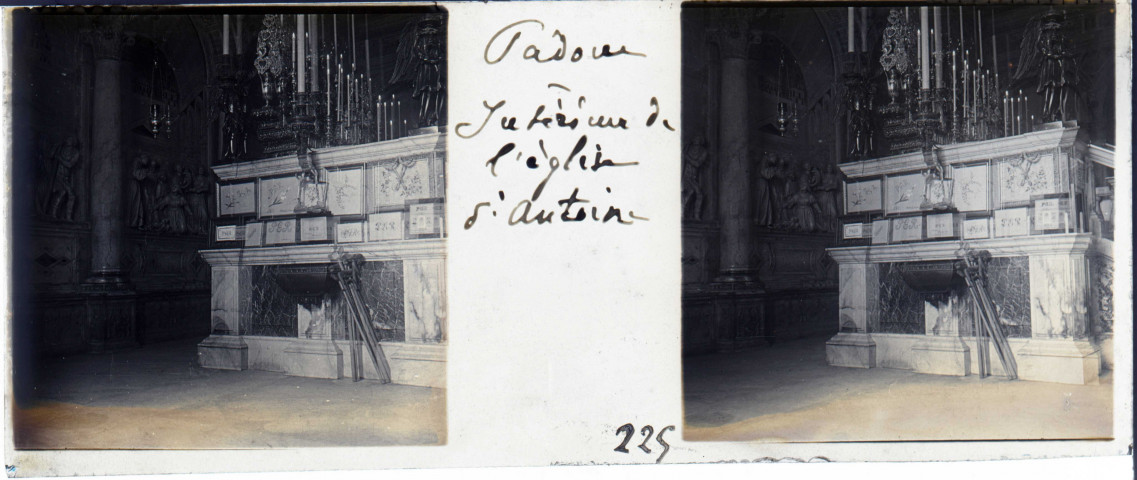 Padoue
Intérieur de
l'église
St Antoine
225